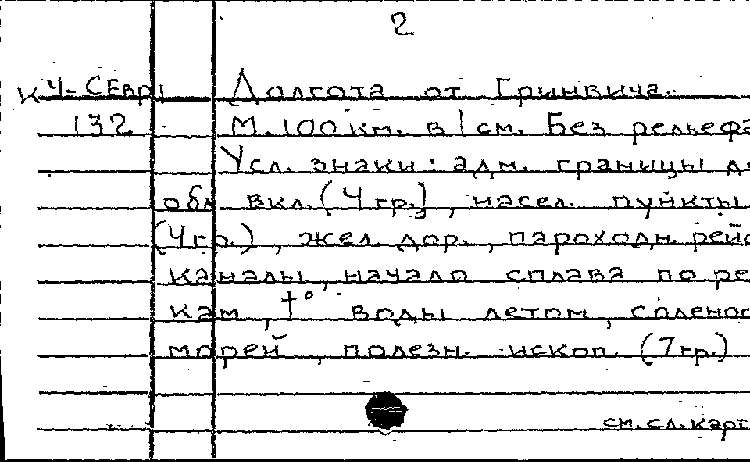 2
К Ч-СЕвр1 Долгота от Гринвича.
132 М. 100 км. в 1 см. Без рельефа
Усл. знаки: адм. границы до
обл вкл. (4 гр.), насел. пункты
(4 гр.), жел. дор., пароходн. рейс
каналы, начало сплава по ре
кам, t° воды летом, соленос
морей, полезн. ископ. (7 гр.)
см. сл. карт